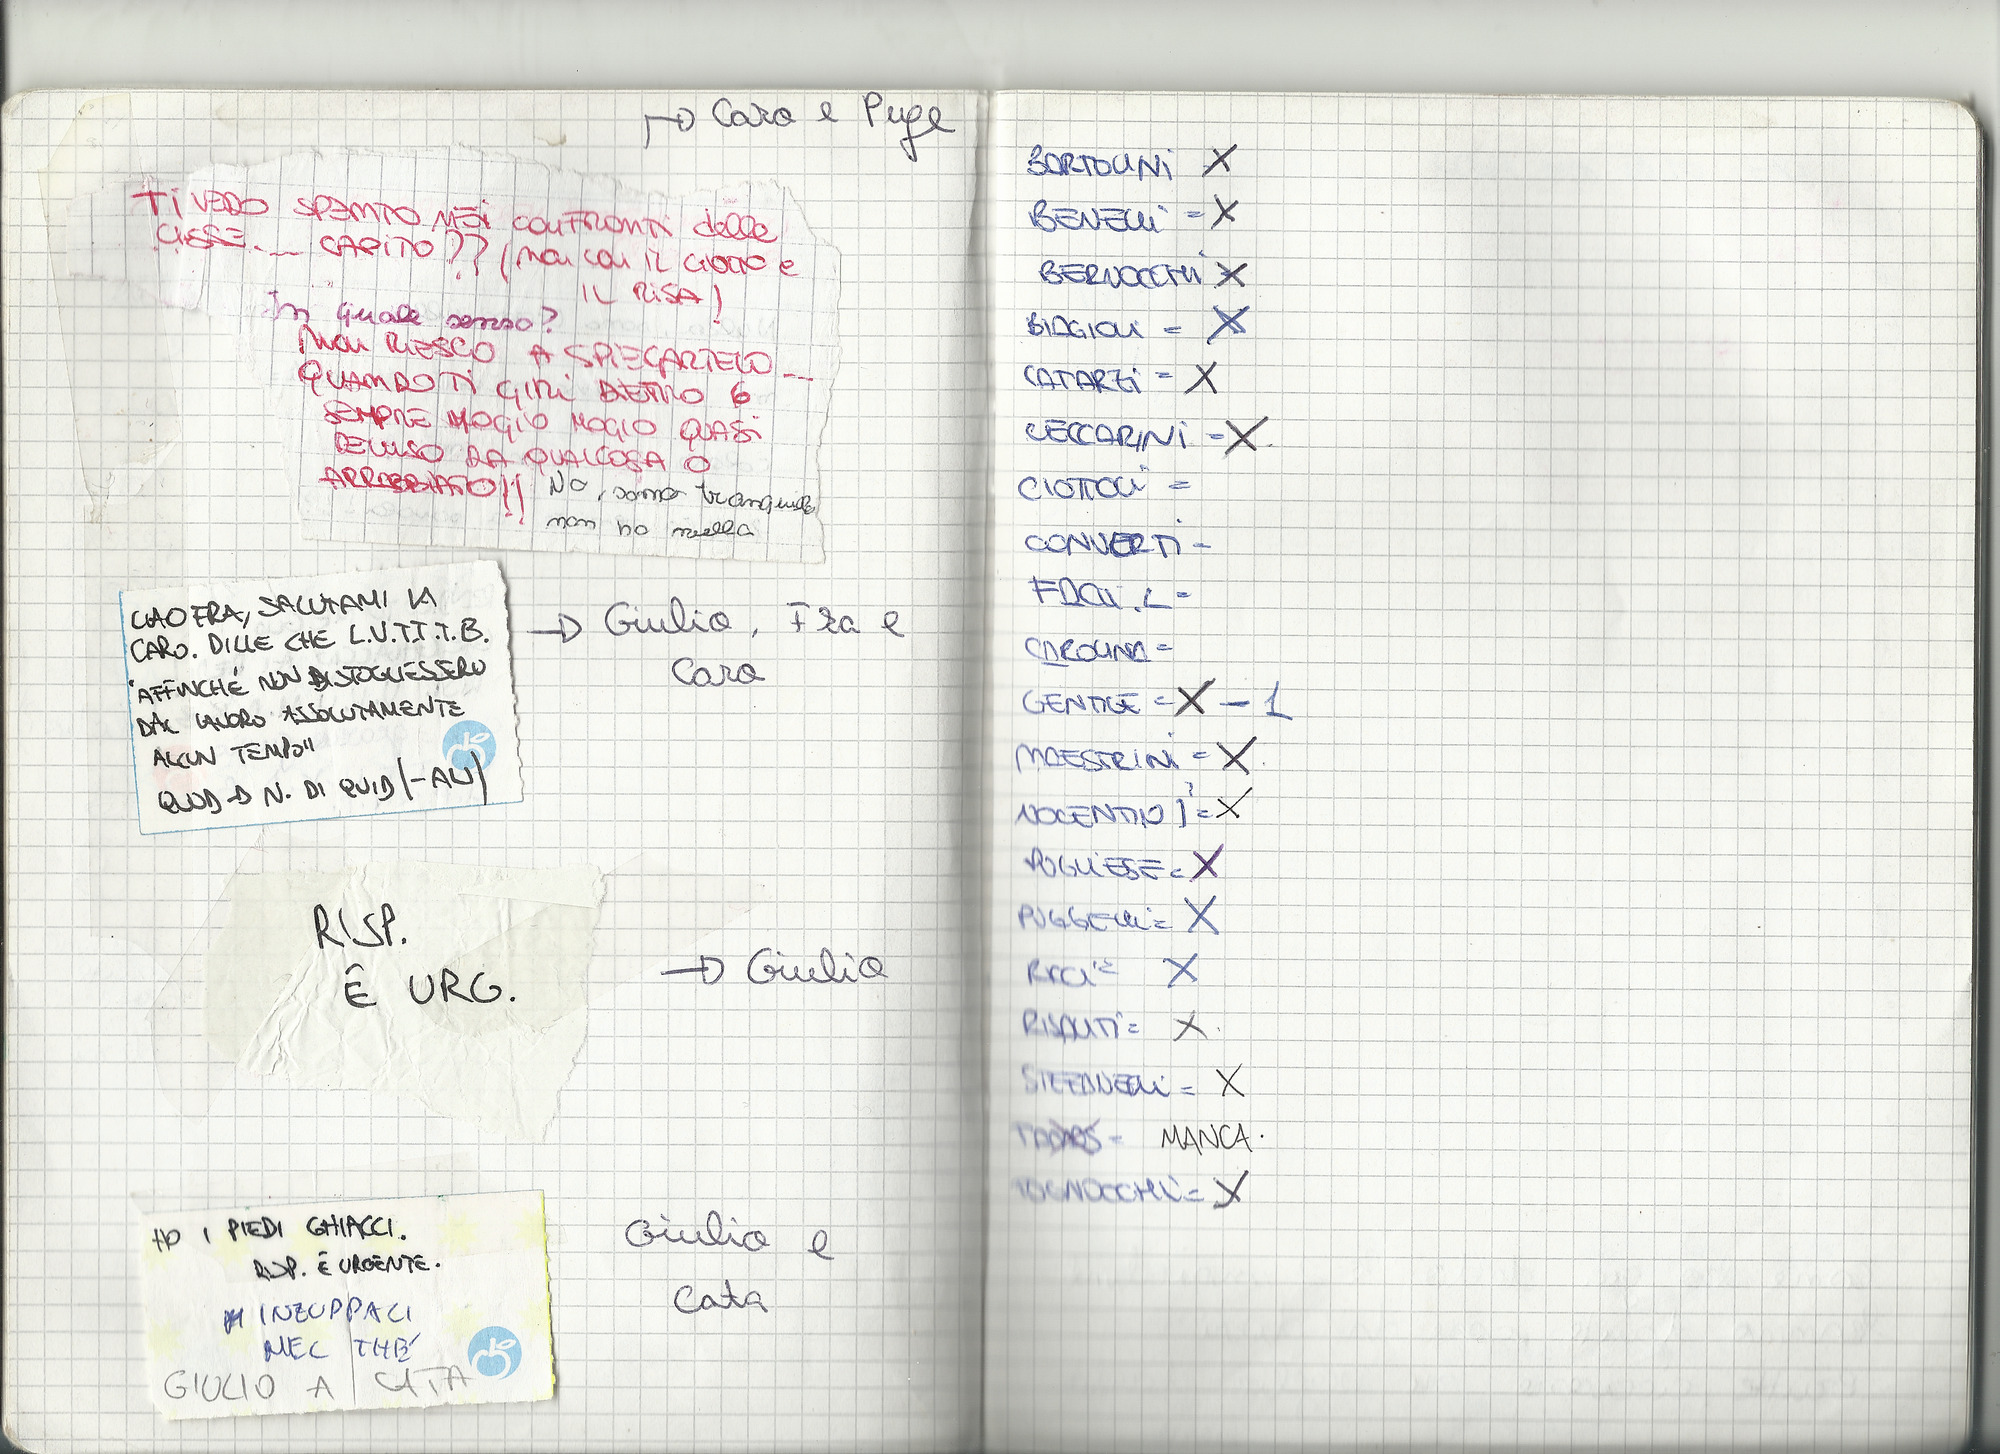 → Caro e Puge
TI VEDO SPENTO NEI CONFRONTI delle
CISSE... CAPITO?? (NON CON IL CIOTTO e
IL RISA)
In quale senso?
NON RIESCO A SPIEGARTELO...
QUANDO TI GIRI DIETRO 6
SEMPRE MOGIO MOGIO QUASI
DELUSO DA QUALCOSA O
ARRABBIATO!!
No, sono tranquilla
non ho nulla
CIAO FRA, SALUTAMI LA
CARO. DILLE CHE L.V.T.T.T.B.
"AFFINCHÉ NON DISTOGLIESSERO
DAL LAVORO ASSOLUTAMENTE
ALCUN TEMPO"
QUOD → N. DI QUID (-ALI)
→ Giulio, Fra e
Caro
RISP.
È URG.
→ Giulio
HO I PIEDI GHIACCI.
RISP. È URGENTE.
INZUPPACI
NEL THÉ
GIULIO A CATA
Giulio e
Cata
BARTOLINI X
BENELLI = X
BERNOCCHI X
BIAGIOLI = X
CATARZI = X
CECCARINI = X
CIOTTOLI =
CONVERTI =
FALLI .L =
CAROLINA =
GENTILE = X - 1
MAESTRINI = X
NOCENTINI = X
PUGLIESE = X
PUGGELLI = X
RICCI = X
RISALITI = X
STEFANELLI = X
MANCA.
TOGNOCCHI = X